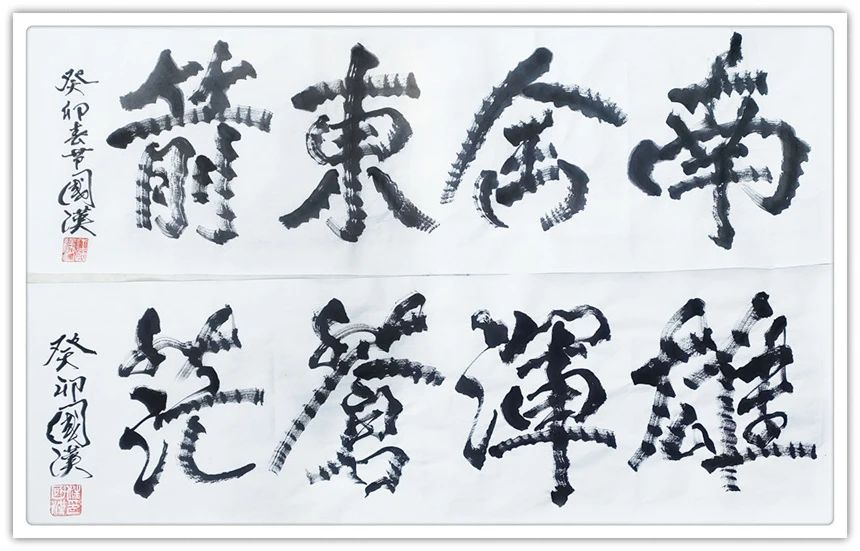 南金東箭
癸卯春节國漢
雄渾蒼茫
癸卯國漢